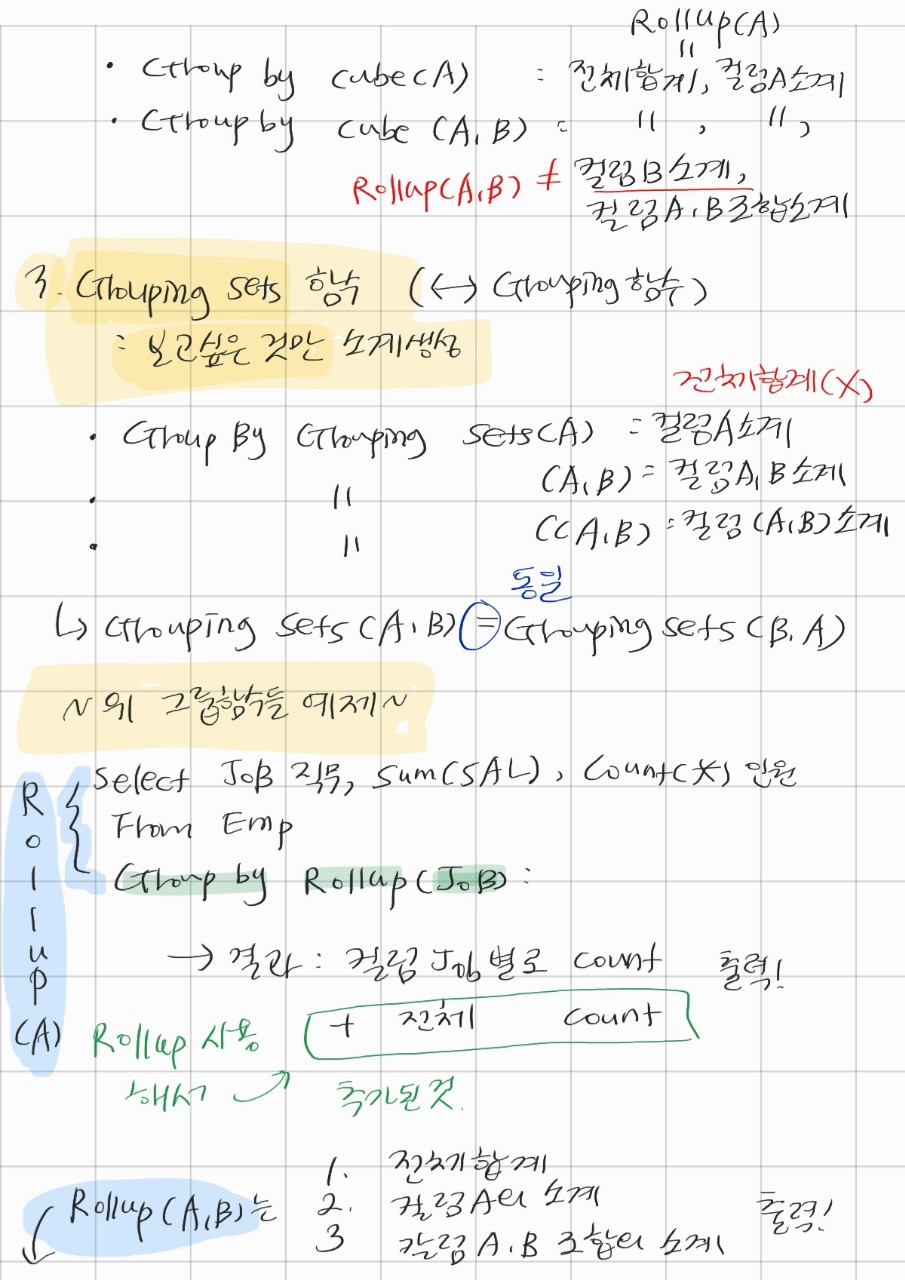 Rollup(A)
〃
• Group by cube(A) : 전체합계, 컬럼A소계
• Group by cube (A, B) : 〃 , 〃,
Rollup(A,B) ≠ 컬럼B소계,
컬럼A,B조합소계
3. Grouping sets 함수 (↔ Grouping함수)
: 보고싶은 것만 소계생성
전체합계(X)
• Group By Grouping sets(A) = 컬럼A소계
• 〃 (A,B) = 컬럼A,B소계
• 〃 ((A,B) = 컬럼(A,B)소계
동일
↳ Grouping sets(A,B) = Grouping sets(B,A)
~위 그룹함수들 예제~
Rollup(A)
Select JoB 직무, sum(SAL), Count(*) 인원
From Emp
Group by Rollup(JoB):
→ 결과 : 컬럼 Job별로 count 출력!
+ 전체 count
Rollup 사용
해서 추가된 것.
Rollup(A,B)는
1. 전체합계
2. 컬럼A의 소계
3 칼럼A,B 조합의 소계
출력!